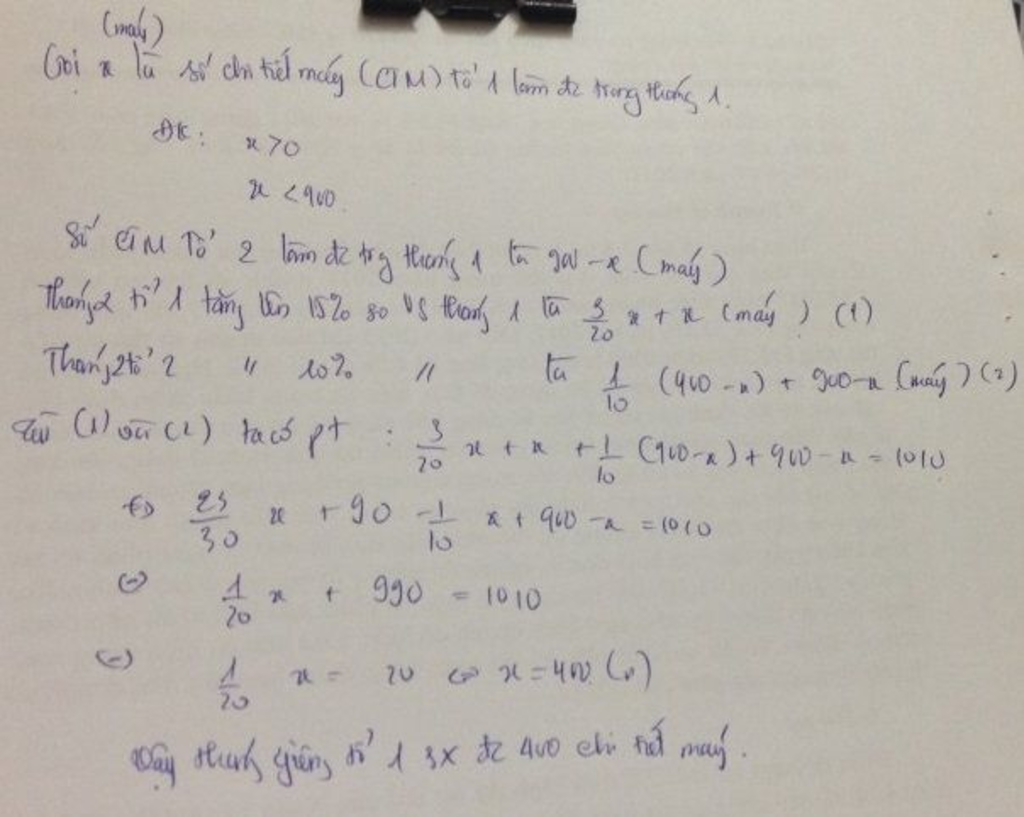 (máy)
Gọi x là số chi tiết máy (CTM) tổ 1 làm đc trong tháng 1.
ĐK: x > 0
x < 900
Số CTM Tổ 2 làm đc trg tháng 1 là 900 - x (máy)
Tháng 2 tổ 1 tăng lên 15% so vs tháng 1 là 3/20 x + x (máy) (1)
Tháng 2 tổ 2 " 10% " là 1/10 (900 - x) + 900 - x (máy) (2)
Từ (1) và (2) ta có pt : 3/20 x + x + 1/10 (900 - x) + 900 - x = 1010
⇔ 23/30 x + 90 - 1/10 x + 900 - x = 1010
⇔ 1/20 x + 990 = 1010
⇔ 1/20 x = 20 ⇔ x = 400 (n)
Vậy tháng giêng tổ 1 sx đc 400 chi tiết máy.